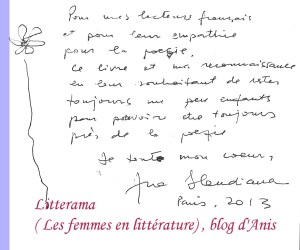 Pour mes lecteurs français
et pour leur empathie
pour la poésie,
ce livre et ma reconnaissance
en leur souhaitant de rester
toujours un peu enfants
pour pouvoir être toujours
près de la poésie
De tout mon coeur,
Ana Blandiana
Paris, 2013
Litterama
(Les femmes en littérature), blog d'Anis